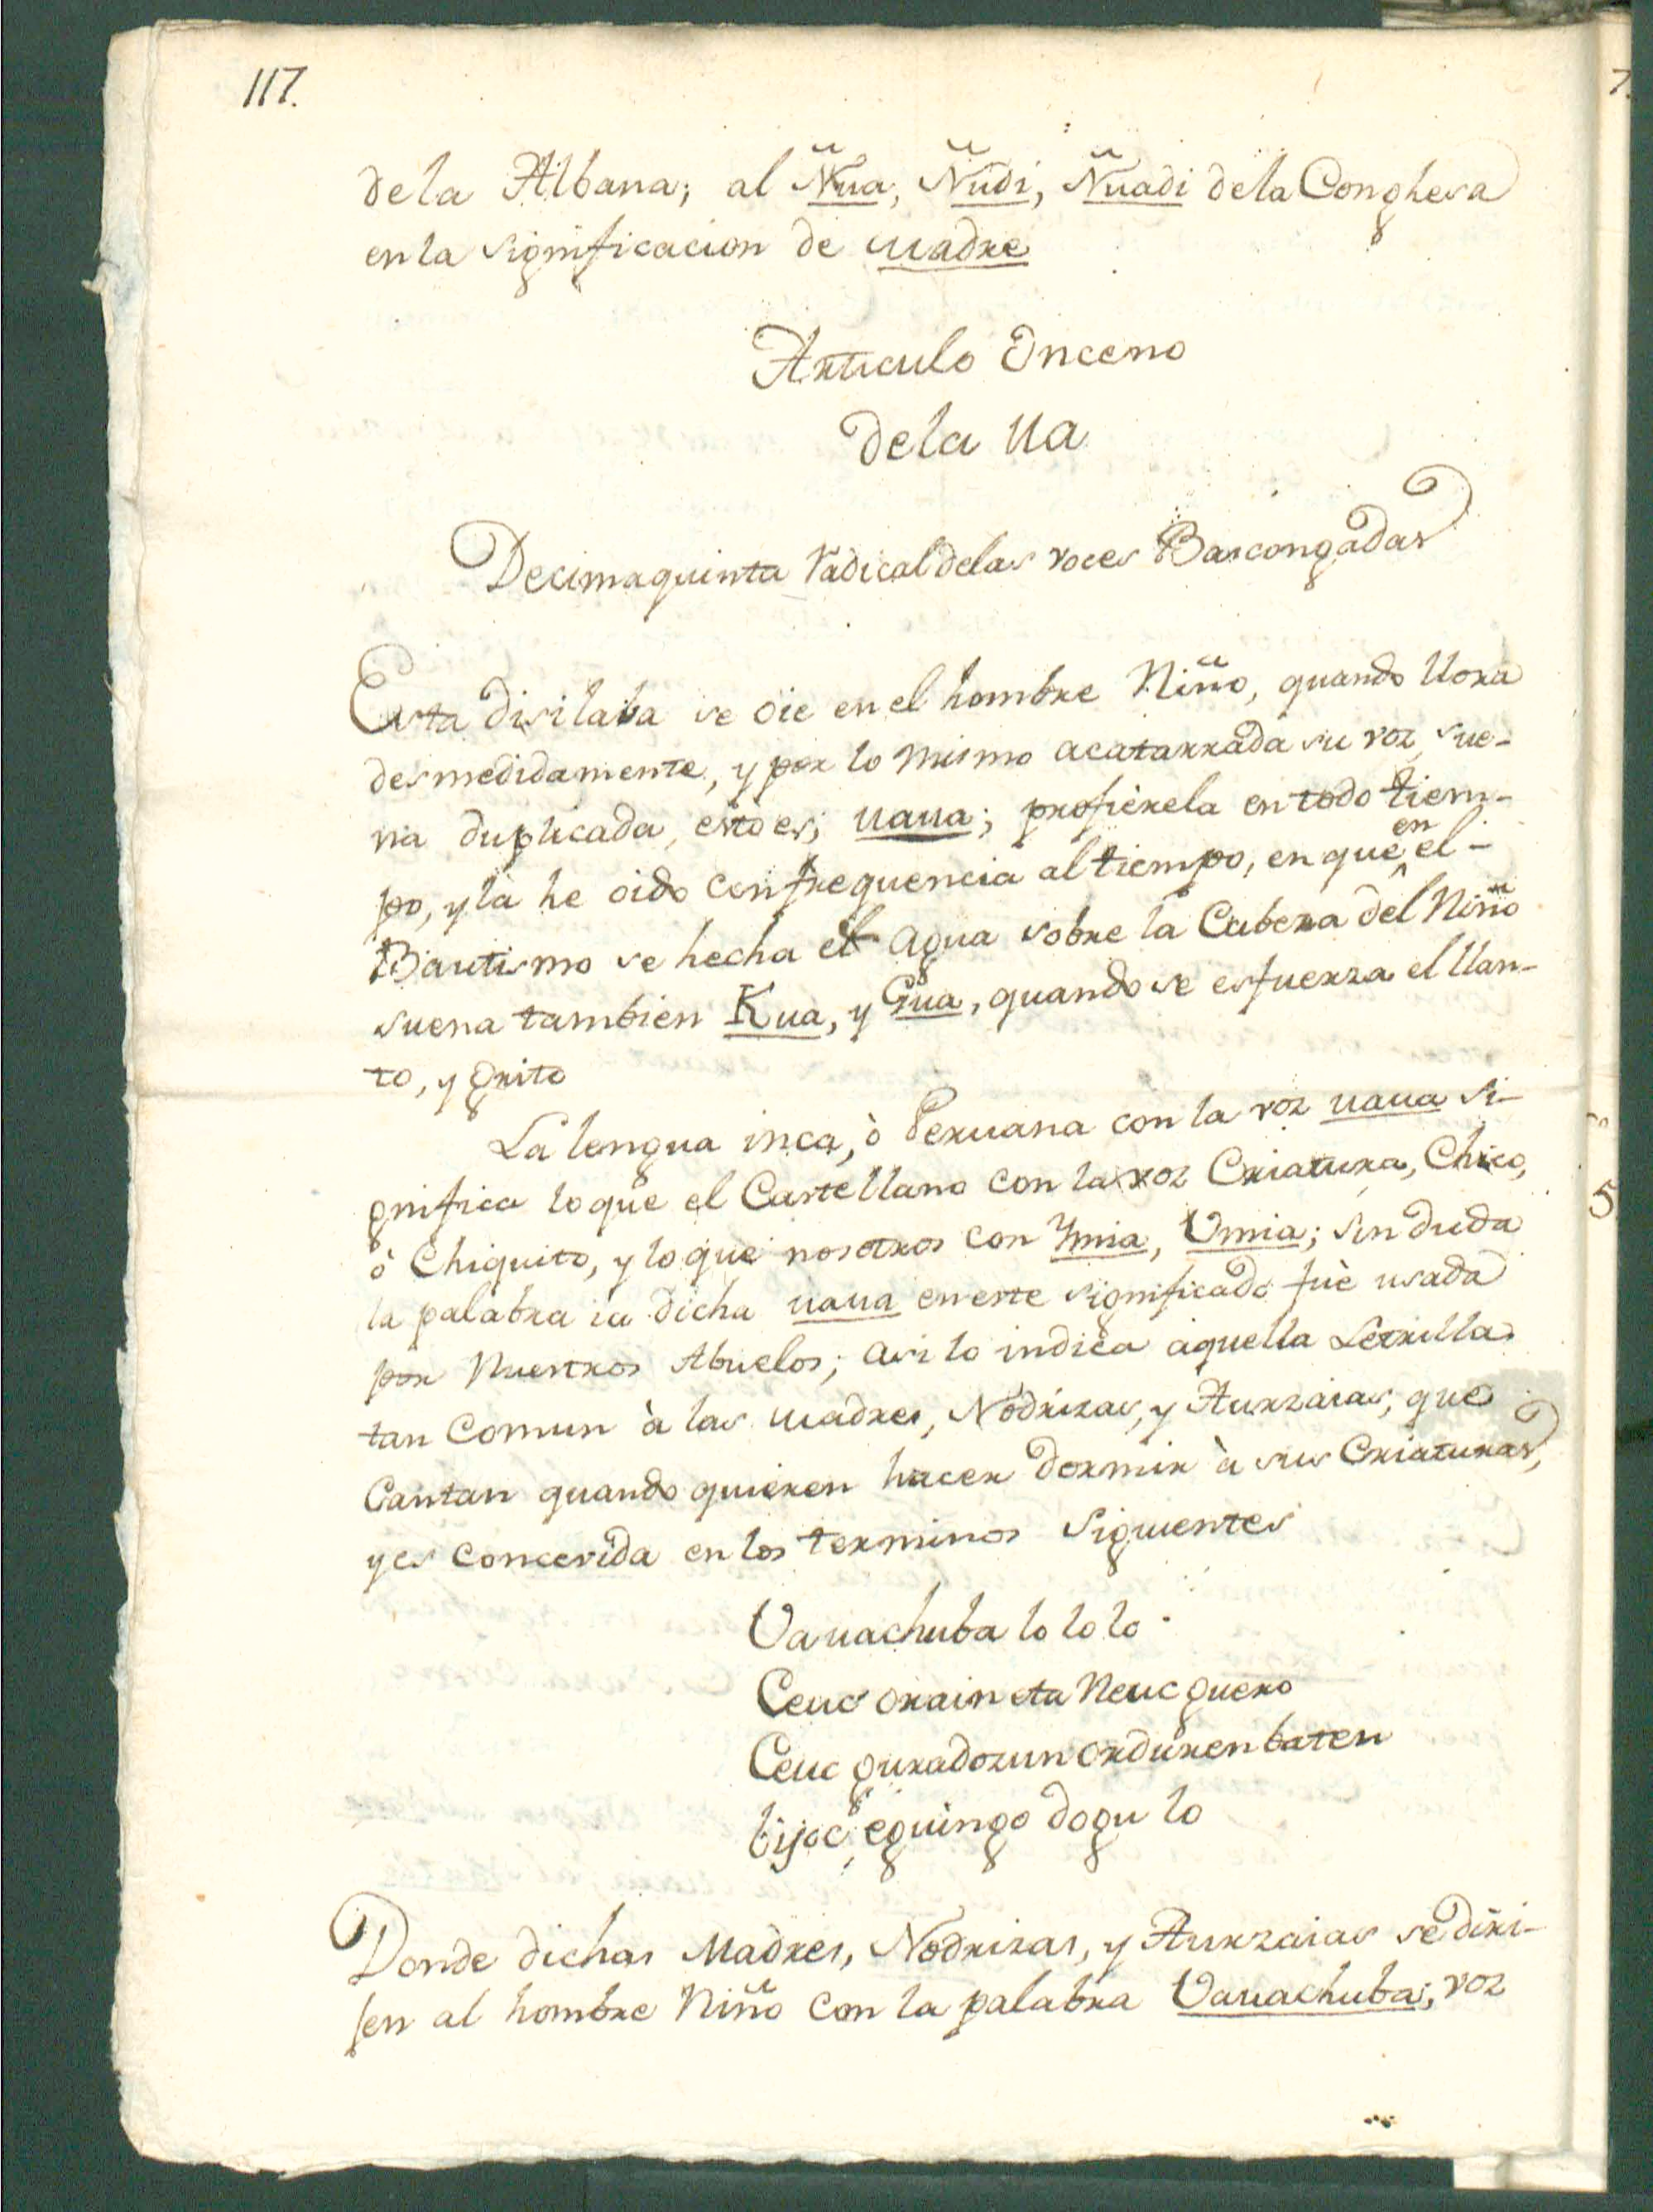 117.
de la Albana; al Ñua, Ñudi, Ñuadi de la Conghesa
en la significacion de Madre
Articulo Onceno
de la Ua
Decimaquinta radical de las voces Bascongadas
Esta disilaba se oie en el hombre Niño, quando llora
desmedidamente, y por lo mismo acatarrada su voz, sue-
na duplicada, esto es; uaua; profièrela en todo tiem-
po, y la he oido con frequencia al tiempo, en que en el
Bautismo se hecha el agua sobre la Cabeza del Niño
suena tambien Kua, y Gua, quando se esfuerza el llan-
to, y grito
La lengua inca, ò Peruana con la voz uaua si-
gnifica lo que el Castellano con la voz Criatura, Chico,
ò Chiquito, y lo que nosotros con Ymia, Umia; sin duda
la palabra ia dicha uaua en este significado fuè usada
por Nuestros Abuelos; asi lo indica aquella Letrilla
tan comun à las Madres, Nodrizas, y Aurzaias, que
Cantan quando quieren hacer dormir à sus Criaturas,
y es concevida en los terminos siguientes
Uauachuba lo lo lo
Ceuc orain eta Neuc guero
Ceuc guradozun orduren baten
bijoc eguingo dogu lo
Donde dichas Madres, Nodrizas, y Aurzaias se diri-
jen al hombre Niño con la palabra Uauachuba; voz